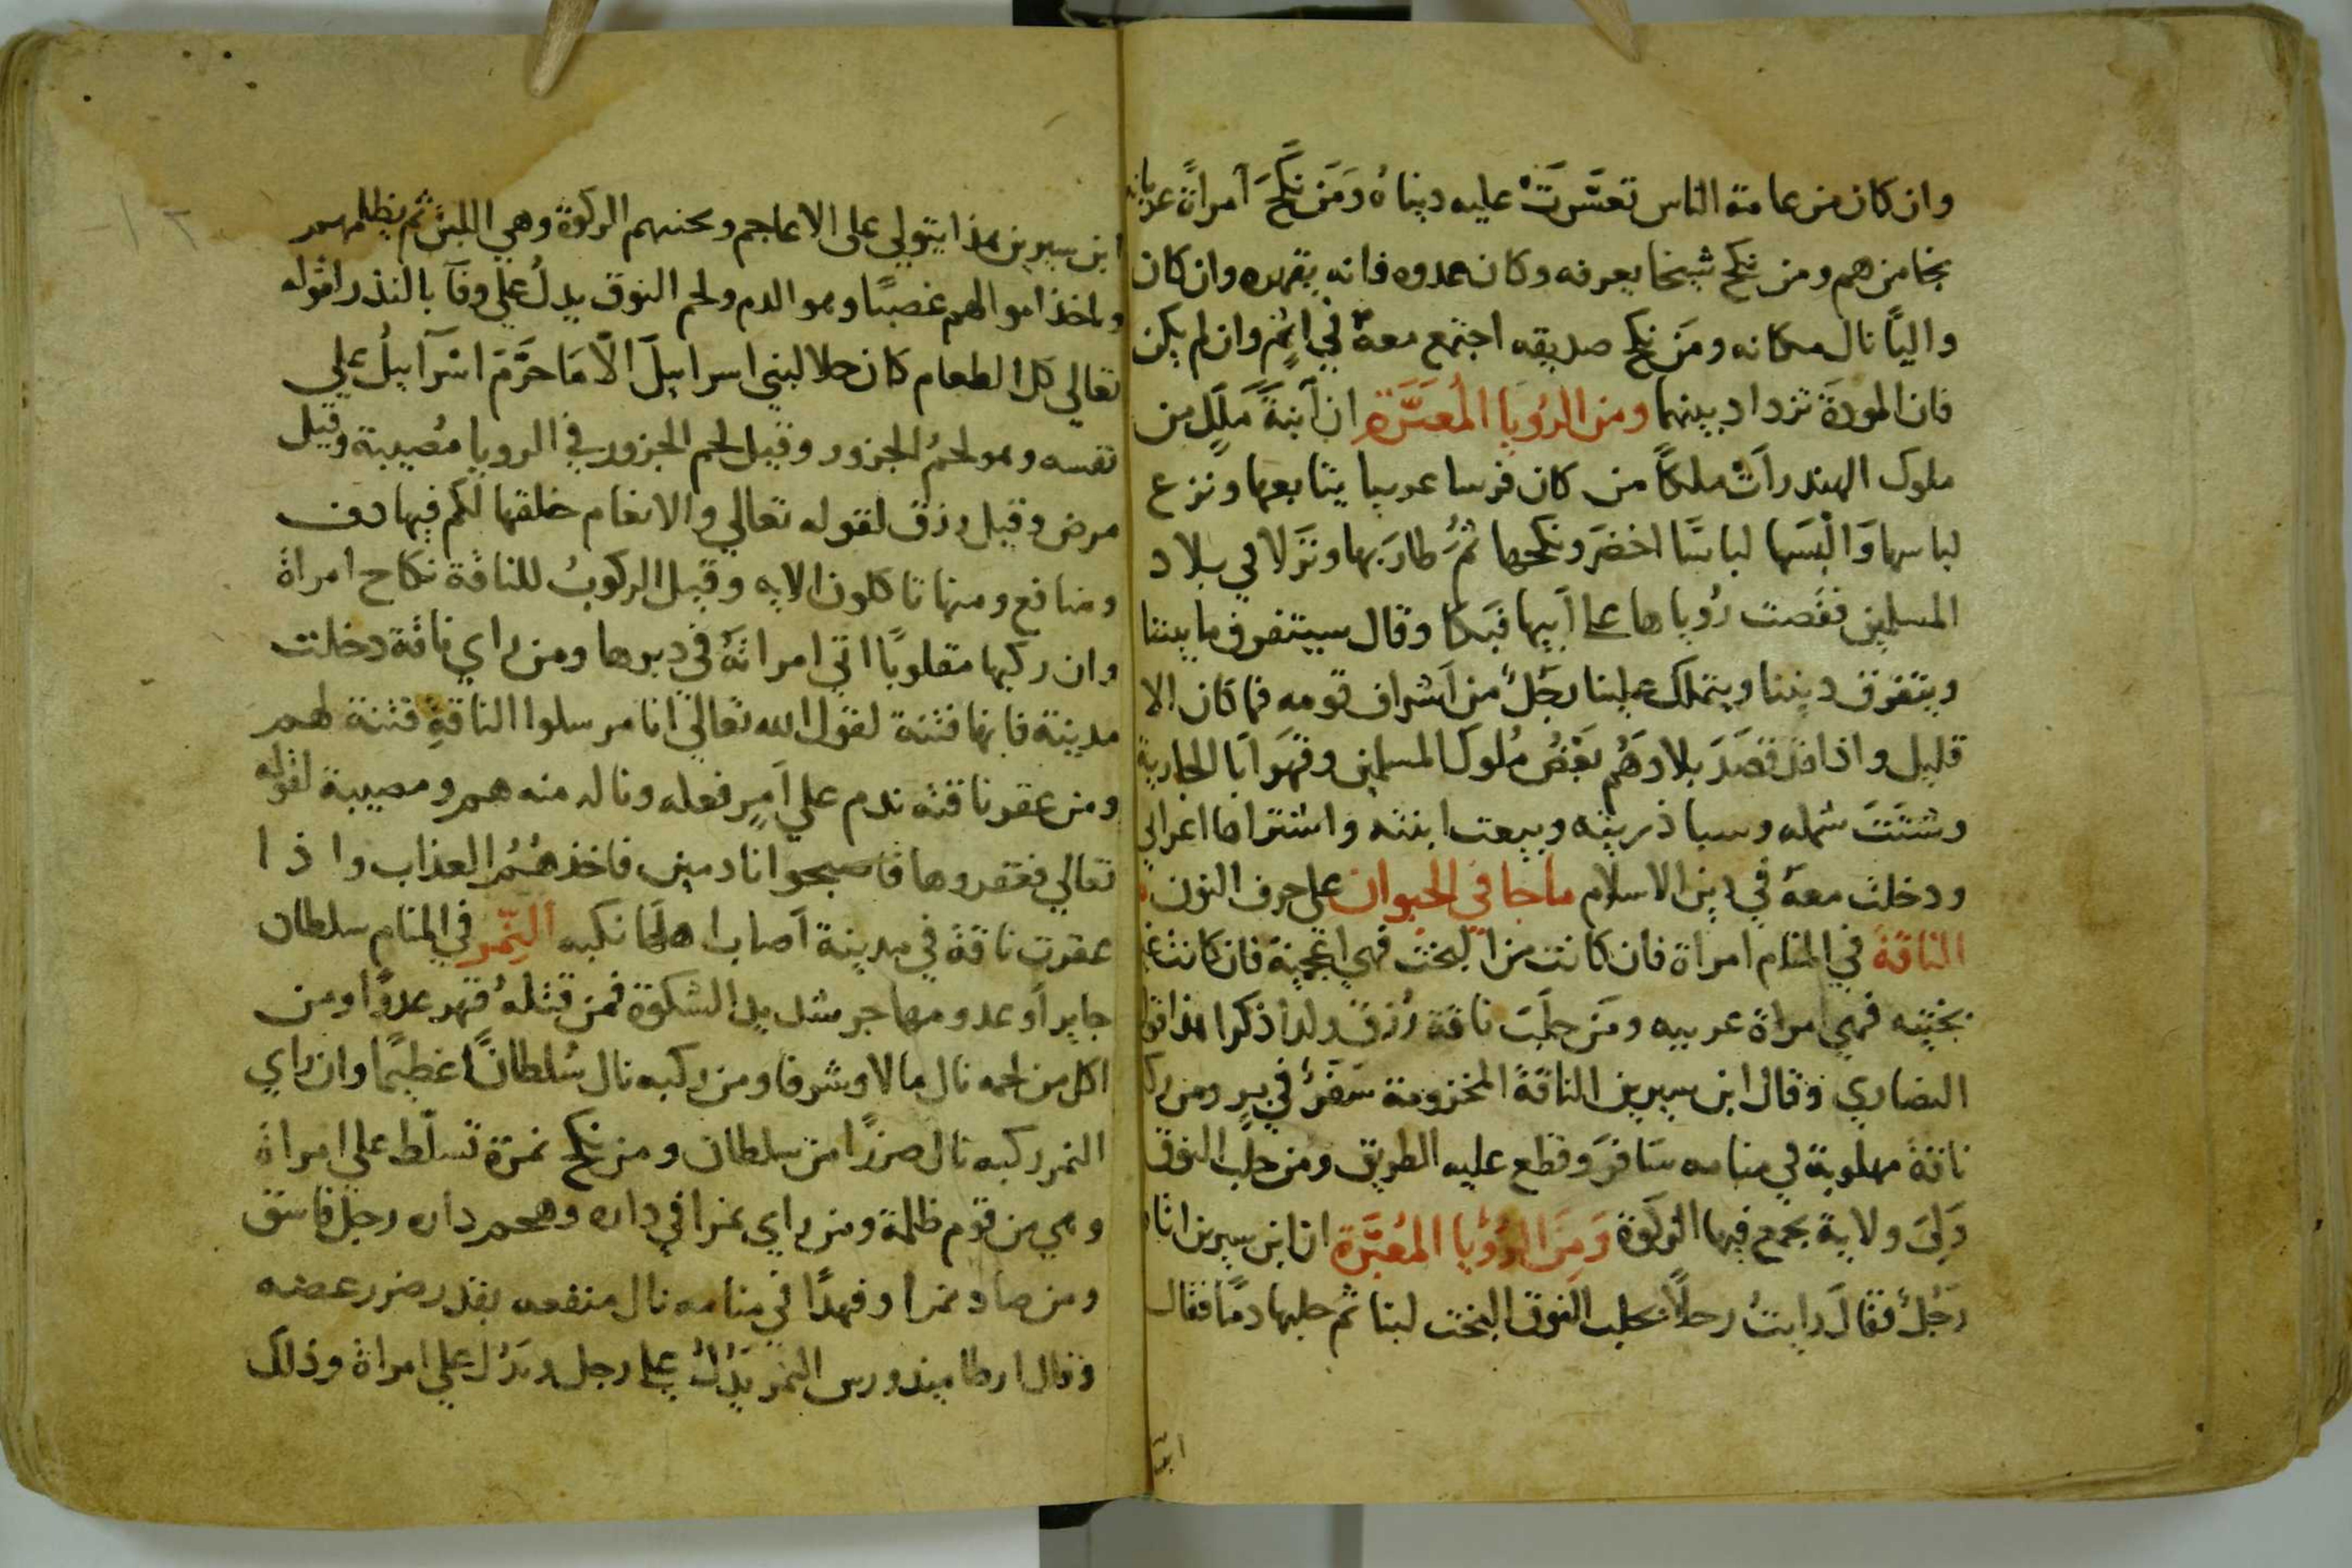 وان كان من عامة الناس تعسَّرَتْ عليه دنياهُ وَمَن نَكَحَ امراةً
نجا من هم ومن نكح شيخا يعرفه وكان عدوه فانه يقهره وان كان
واليًا نال مكانه ومَن نكح صديقه اجتمع معهُ في اثمٍ وان لم يكن
فان المودةَ تزداد بينهما ومن الرُويَا المُعبَّرَة ان ابنةَ مَلِكٍ من
ملوك الهند رأتْ ملكاً من كان فرسا عربيا يتابعها ونزع
لباسها وَالْبَسَها لباسًا اخضرَ ونكحها ثمُ طارَ بها ونَزَلا في بلاد
المسلمين فقصت رُوياها على اَبيها فَبَكا وقال سيتفرق ما بيننا
ويتفرق ديننا ويتملك علينا رجُلٌ من اَشراف قومه فما كان الا
قليل واذا قد قصَدَ بلادَهُم بعْضُ مُلوك المسلمين وقهَرَ ابَا الجارية
وشتَتَ شمله وسبا ذريته وبيعت ابنته واشتراها اعرابي
ودخلت معهُ في دين الاسلام ماجا في الحيوان على حرف النون
الناقة في المنام امراة فان كانت من البخت فهي اعجمية فان كانت غير
بختيه فهي امراة عربيه ومَن حلَبَ ناقة رُزق ولدا ذكرا هذا قول
النصاري وقال ابن سيرين الناقةُ المخزومة سَفَرٌ في بر ومن ركب
ناقة مهلوبة في منامه سَافرَ وقطع عليه الطريق ومن حلب النوق
وَلِيَ ولاية يجمع فيها الزكوة وَمِنَ الرُؤْيا المُعبَّرة ان ابن سيرين اتاه
رَجُلٌ فقالَ رايتُ رجلاً يحلب النوق البخت لبنا ثم حلبها دمًا فقال
ابن
ابن سيرين هذا يتولي على الاعاجم ويجبيهم الزكوة وهي اللبن ثم يظلمهم
وياخذ اموالهم غصبًا وهو الدم ولحم النوق يدلُ علي وفآ بالنذر لقوله
تعالي كل الطعام كان حلا لبني اسراييلَ الّا مَا حَرَّمَ اسْرَآييلُ علي
نفسه وهو لحمُ الجزور وقيل لحم الجزور في الرويا مُصيبة وقيل
مرض وقيل رزق لقوله تعالي والانعام خلقها لكم فيها دف
ومنافع ومنها تاكلون الايه وقيل الركوبُ للناقة نكاح امراة
وان ركبها مقلوبًا اتي امراتهُ في دبرها ومن راي ناقة دخلت
مدينة فانها فتنة لقول الله تعالي انا مرسلوا الناقةِ فتنة لهم
ومن عقر ناقته ندم علي اَمرٍ فعله وناله منه هم ومصيبة لقوله
تعالي فعقروها فاصبحوا نادمين فاخذهُمُ العذاب واذا
عقرت ناقة في مدينة اَصاب اهلَها نكبه النِّمر في المنام سلطان
جاير اَو عدو مهاجر شديد الشكوة فمن قتلهُ قهر عدوًا ومن
اكل من لحمه نال مالا وشرفا ومن ركبه نال سُلطانًا عظيمًا وان راي
النمر ركبه نال ضررًا من سلطان ومن نكح نمرة تسلّط علي امراة
وهي من قوم ظلمة ومن راي نمرا في داره وهجم داره رجل فاسق
ومن صاد نمرا وفهدًا في منامه نال منفعه بقدر ضرر عضه
وقال ارطاميدورس النمر يَدُلُ على رجل ويَدُل علي امراة وذلك